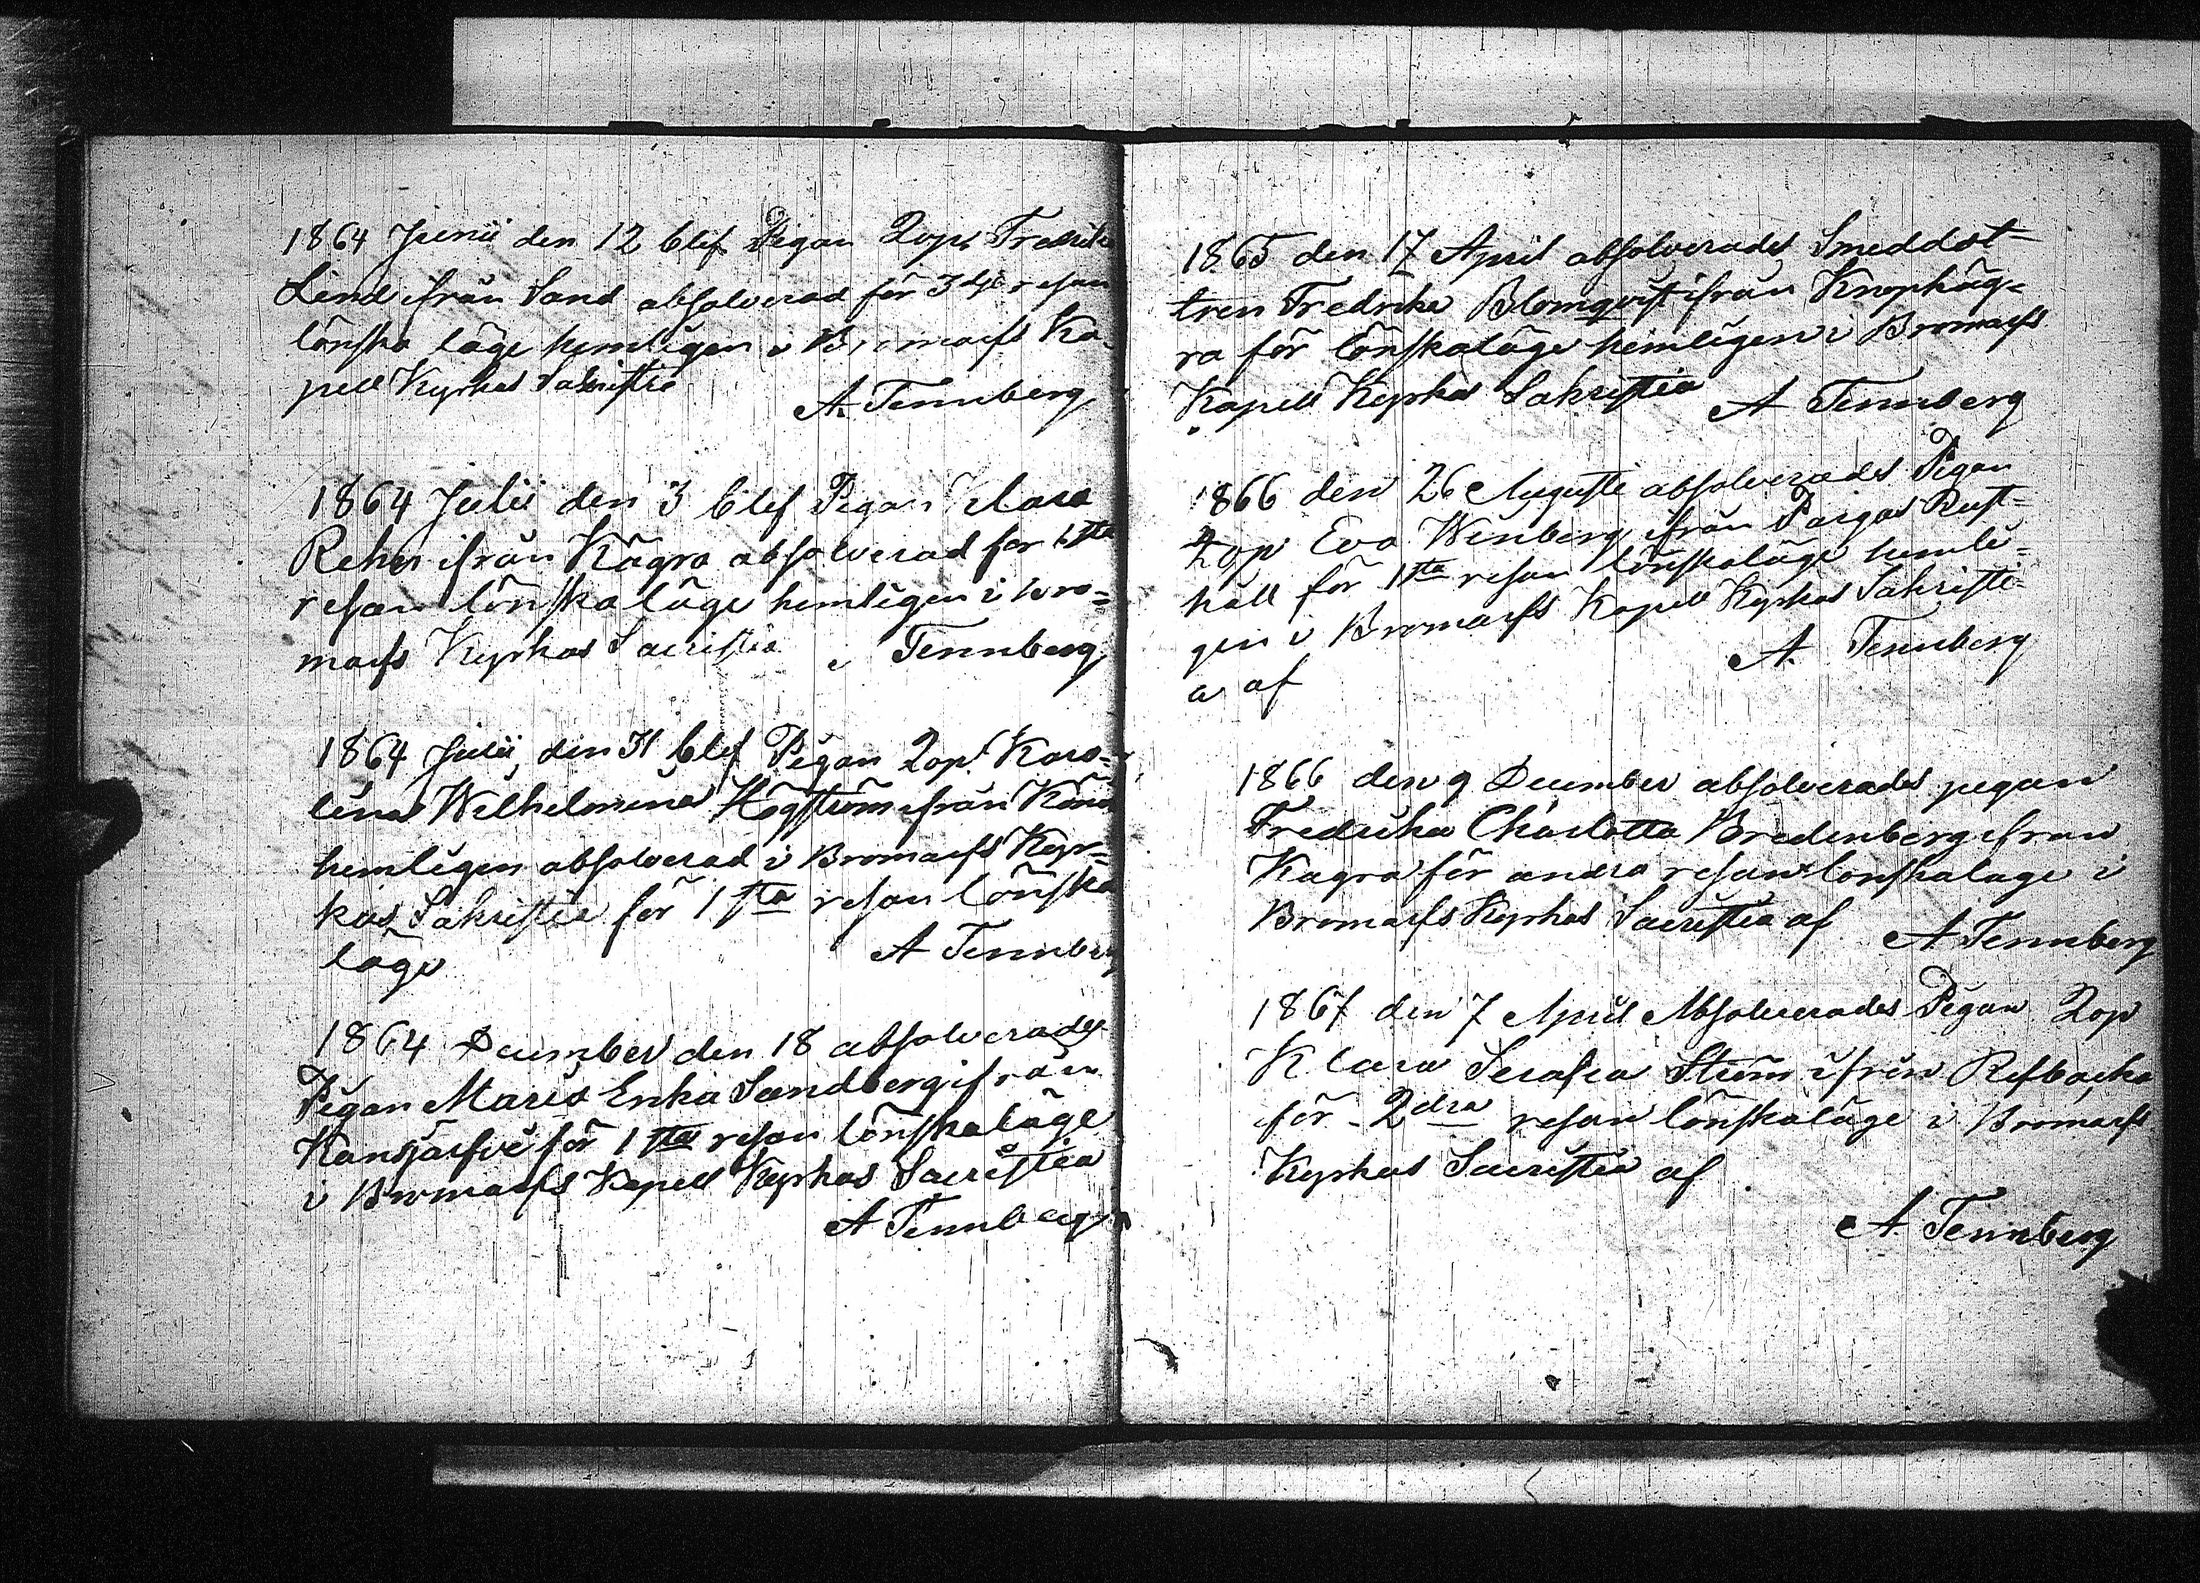 1864 Junii den 12 blef Pigan 2op. Fredrika
Lind ifrån Sand absolverad för 3dje resan
lönska läge hemligen i Bromarfs Ka-
pell Kyrkas Sakristia
A. Tennberg
1864 Julii den 3 blef Pigan Klara
ifrån Kågra absolverad för 1sta
resan lönskaläge hemligen i Bro=
marfs Kyrkas Sacristia
Tennberg
1864 Julii den 31 blef Pigan 2op. Karo=
lina Wilhelmina Högström ifrån
hemligen absolverad i Bromarfs Kyr=
kas Sakristia för 1sta resan lönska
läge
A Tennberg
1864 December den 18 absolverades
Pigan Maria Erika Sandberg ifrån
Kansjärfvi för 1sta resan lönskaläge
i Bromarfs Kapell Kyrkas Sacristia
A Tennberg
1865 den 17 April absolverades Smeddot=
tren Fredrika Blomqvist ifrån Knophäg=
ra för lönskaläge hemligen i Bromarfs
Kapell Kyrkas Sakristia
A Tennberg
1866 den 26 Augusti absolverades Pigan
2op Eva Wenberg ifrån Pargas Rust=
håll för 1sta resan lönskaläge hemli=
gen i Bromarfs Kapell Kyrkas Sakristi-
a af
A. Tennberg
1866 den 9 December absolverades pigan
Fredrika Charlotta Bredenberg ifrån
Kagra för andra resan lönskaläge i
Bromarfs Kyrkas Sacristia af
A Tennberg
1867 den 7 April Absolverades Pigan 2op
Klara Serafia Ström ifrån Refbacka
för 2dra resan lönskaläge i Bromarfs
Kyrkas Sacristia af
A. Tennberg